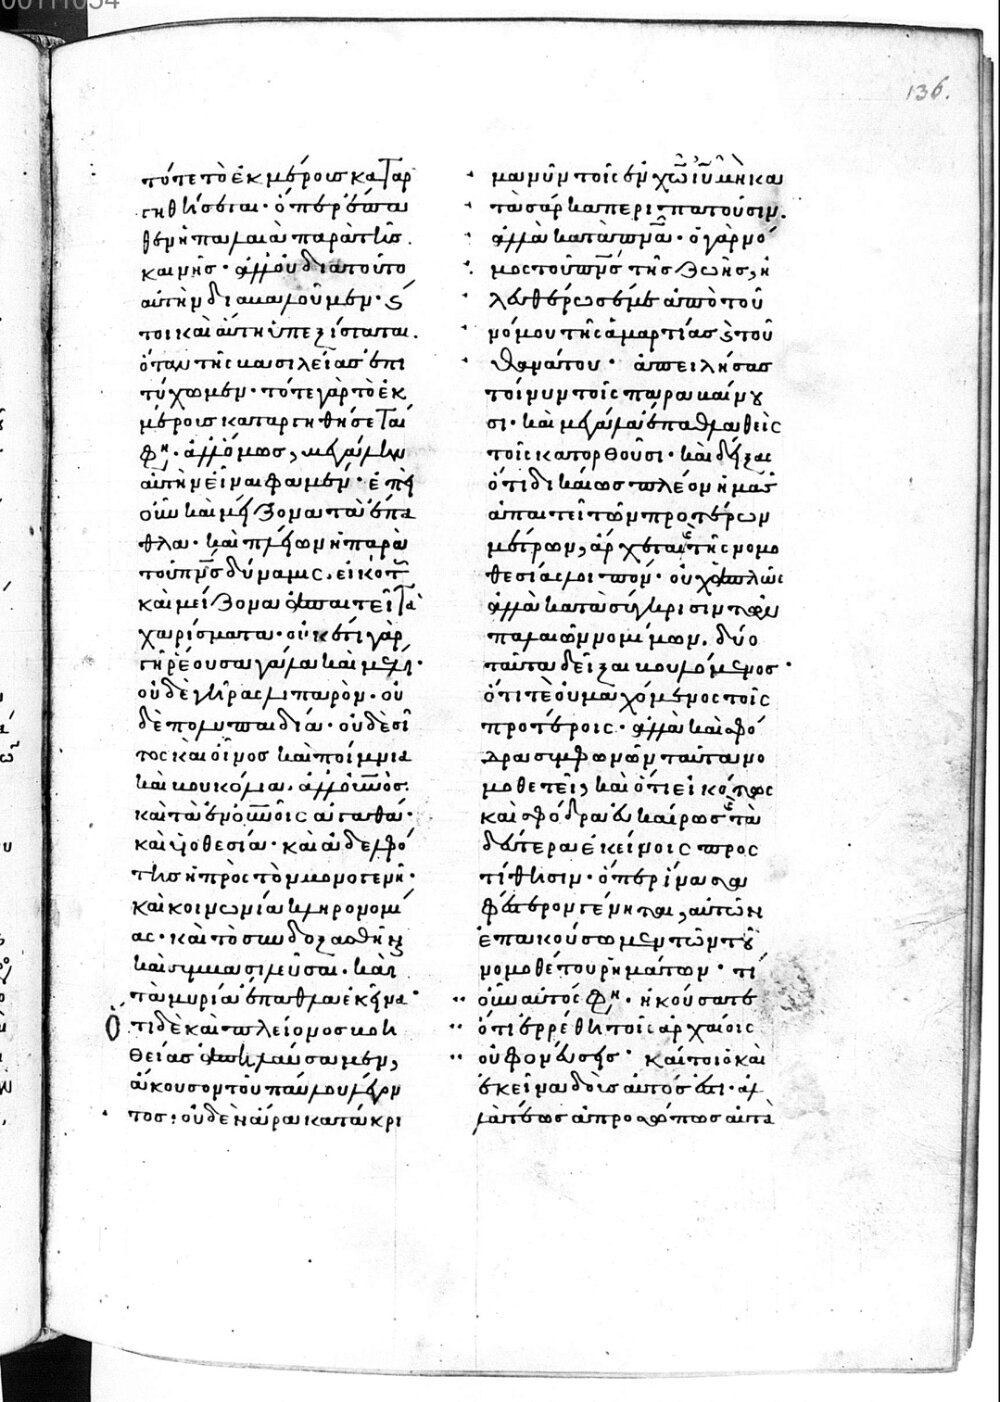 136.
τότε τὸ ἐκ μέρους καταρ
γηθήσεται· ὅπερ ἔπα
θεν ἡ παλαιὰ παρὰ τῆς
καινῆς· ἀλλ' οὐ διὰ τοῦτο
αὐτὴν διαβάλλομεν· εἴ
τοι καὶ αὐτὴ ὑπεξίσταται.
ὅταν τῆς βασιλείας ἐπι
τύχωμεν· τότε γὰρ τὸ ἐκ
μέρους καταργηθήσεται
φη· ἀλλ' ὅμως, μεγάλην
αὐτὴν εἶναι φαμὲν· ἐπεὶ
οὖν καὶ μείζονα τὰ ἔπα
θλα· καὶ πλείων ἡ παρὰ
τοῦ πνς δύναμις. εἰκότως
καὶ μείζονα ἀπαιτεῖ τὰ
χαρίσματα· οὐκ ἔτι γὰρ
γῆ ῥέουσα γάλα καὶ μέλι·
οὐδὲ γῆρας λιπαρὸν· οὐ
δὲ πολυπαιδία· οὐδὲ σῖ
τος καὶ οἶνος καὶ ποίμνια
καὶ βουκόλια. ἀλλ' οὐνὸς·
καὶ τὰ ἐν οὐνοῖς ἀγαθὰ·
καὶ υἱοθεσία· καὶ ἀδελφό
της ἡ πρὸς τὸν μονογενῆ·
καὶ κοινωνία κληρονομί
ας· καὶ τὸ συνδοξασθῆναι
καὶ συμβασιλεῦσαι. καὶ
τὰ μυρία ἔπαθλα ἐκεῖνα·
Ὅτι δὲ καὶ πλείονος βοη
θείας ἀπηλαύσαμεν,
ἄκουσον τοῦ παύλου λέγον
τος: οὐδὲν ἄρα κατάκρι
μα νῦν τοῖς ἐν χῶ ἰῦ μὴ κα
τὰ σάρκα περιπατοῦσιν.
ἀλλὰ κατὰ πνα· ὁ γὰρ νό
μος τοῦ πνς τῆς ζωῆς, ἠ
λευθέρωσέ με ἀπὸ τοῦ
νόμου τῆς ἁμαρτίας καὶ τοῦ
θανάτου· ἀπειλήσας
τοίνυν τοῖς παραβαίνου
σι· καὶ μεγάλα ἔπαθλα θεὶς
τοῖς κατορθοῦσι· καὶ δείξας
ὅτι δικαίως πλέον ἡμᾶς
ἀπαιτεῖ τῶν προτέρων
μέτρων, ἄρχεται τῆς νομο
θεσίας λοιπὸν· οὐχ ἁπλῶς
ἀλλὰ κατὰ σύγκρισιν τῶν
παλαιῶν νομίμων. δύο
ταῦτα δεῖξαι βουλόμενος·
ὅτι τε οὐ μαχόμενος τοῖς
προτέροις· ἀλλὰ καὶ σφό
δρα συμφωνῶν ταῦτα νο
μοθετεῖ, καὶ ὅτι εἰκότως
καὶ σφόδρα εὐκαίρως τὰ
δεύτερα ἐκείνοις προς
τίθησιν· ὅπερ ἵνα σα
φέστερον γένηται, αὐτῶν
ἐπακούσωμεν τῶν τοῦ
νομοθέτου ῥημάτων· τί
οὖν αὐτός φη· ἠκούσατε
ὅτι ἐρρέθη τοῖς ἀρχαίοις
οὐ φονεύσεις· καίτοι ὁ καὶ
ἐκεῖνα δοὺς αὐτός ἐστι· ἀλ
λὰ τέως ἀπροσώπως αὐτὰ